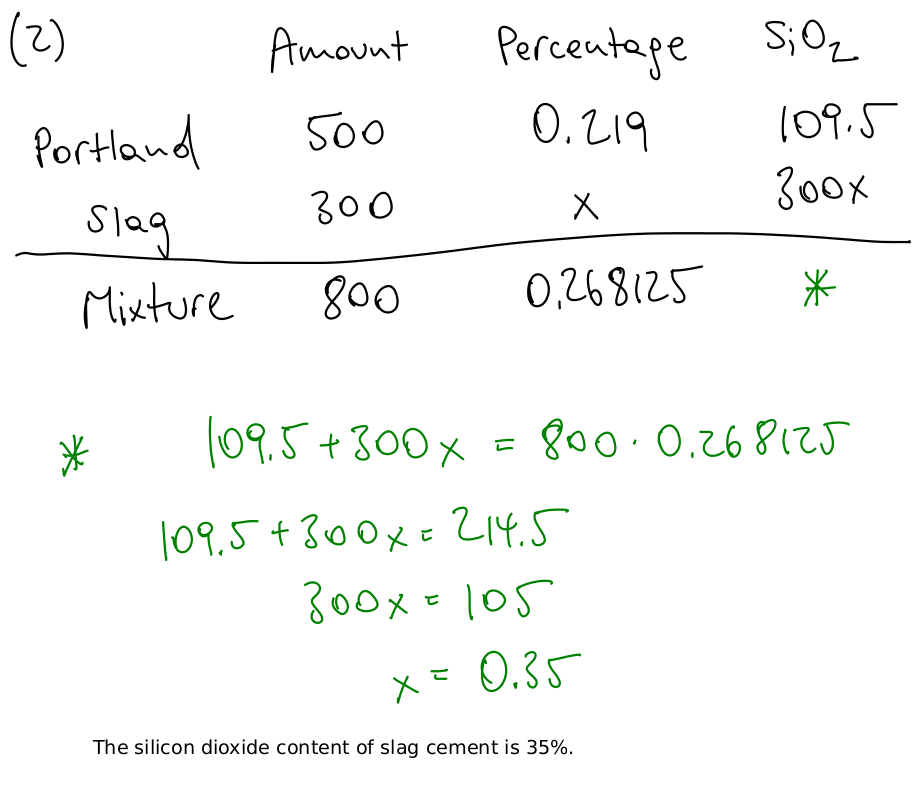 (2) Amount Percentage SiO2
Portland 500 0.219 109.5
Slag 300 x 300x
Mixture 800 0.268125 *
* 109.5 + 300x = 800 · 0.268125
109.5 + 300x = 214.5
300x = 105
x = 0.35
The silicon dioxide content of slag cement is 35%.